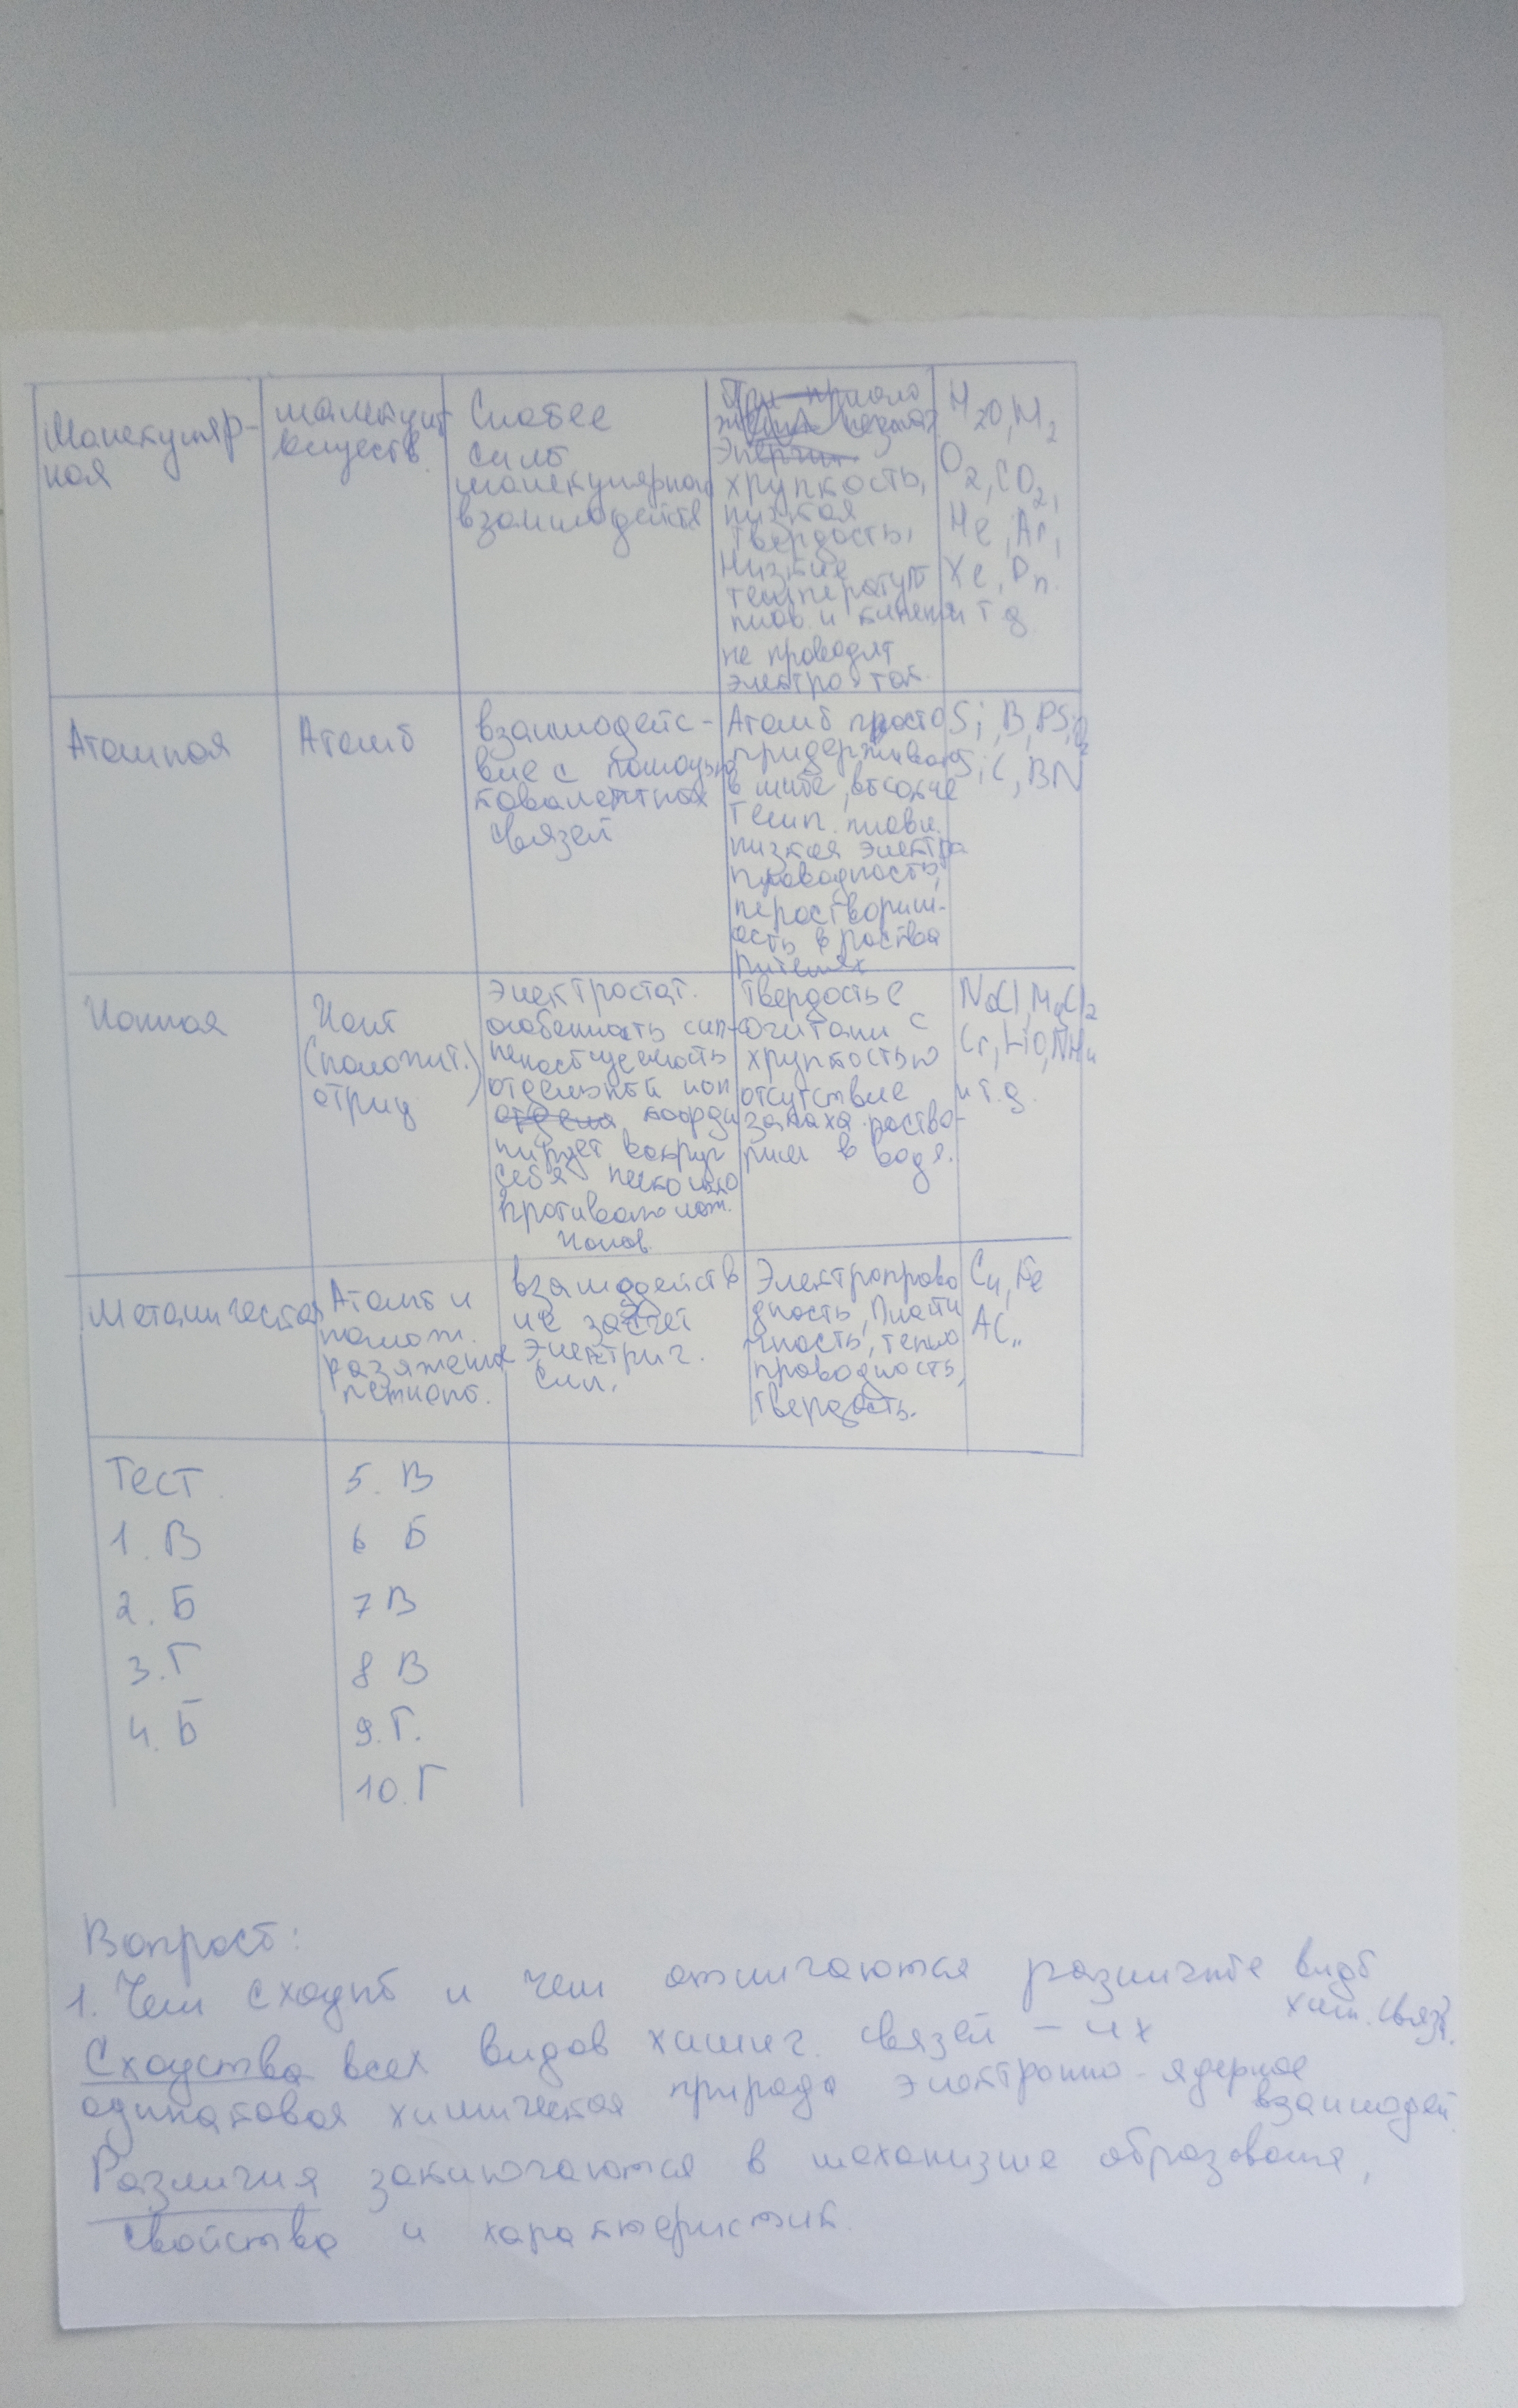 Молекуляр-
ная
молекулы
веществ.
Слабее
силы
молекулярного
взаимодейств
хрупкость,
низкая
твердость,
Низкие
температуры
плав. и кипения
не проводят
электро ток.
H2O, H2
O2, CO2,
He, Ar,
Xe, Rn.
и т д
Атомная
Атомы
взаимодейс-
вие с помощью
ковалентных
связей
Атомы просто
придерживают
высокие
темп. плавл.
низкая электро
проводность,
нерастворим-
ость в раство
рителях
Si, B,
SiC, BN
Ионная
Ионы
(положит.)
отриц
Электростат.
особенность сил-
ненасыщенность
отдельный ион
коорди
нирует вокруг
себя несколько
противополож.
ионов
Твердость в
сочитани с
хрупкостью
отсутствие
запаха. раство-
рим в воде.
NaCl, MgCl2
и т.д.
Металическая
Атомы и
полож.
разяженые
взаимодейств
ие засчет
Электрич.
сил.
Электропрово
дность, Пласти
чность, тепло
проводность,
твердость.
Cu, Fe
Тест.
1. В
2. Б
3. Г
4. Б
5. В
6 Б
7 В
8 В
9. Г.
10. Г
Вопросы:
1. Чем сходны и чем отличаются различные виды
хим. связ?
Сходства всех видов химич. связей – их
одинаковая химическая природа электронно-ядерное
взаимодей.
Различия заключаются в механизме образования,
свойства и характеристик.